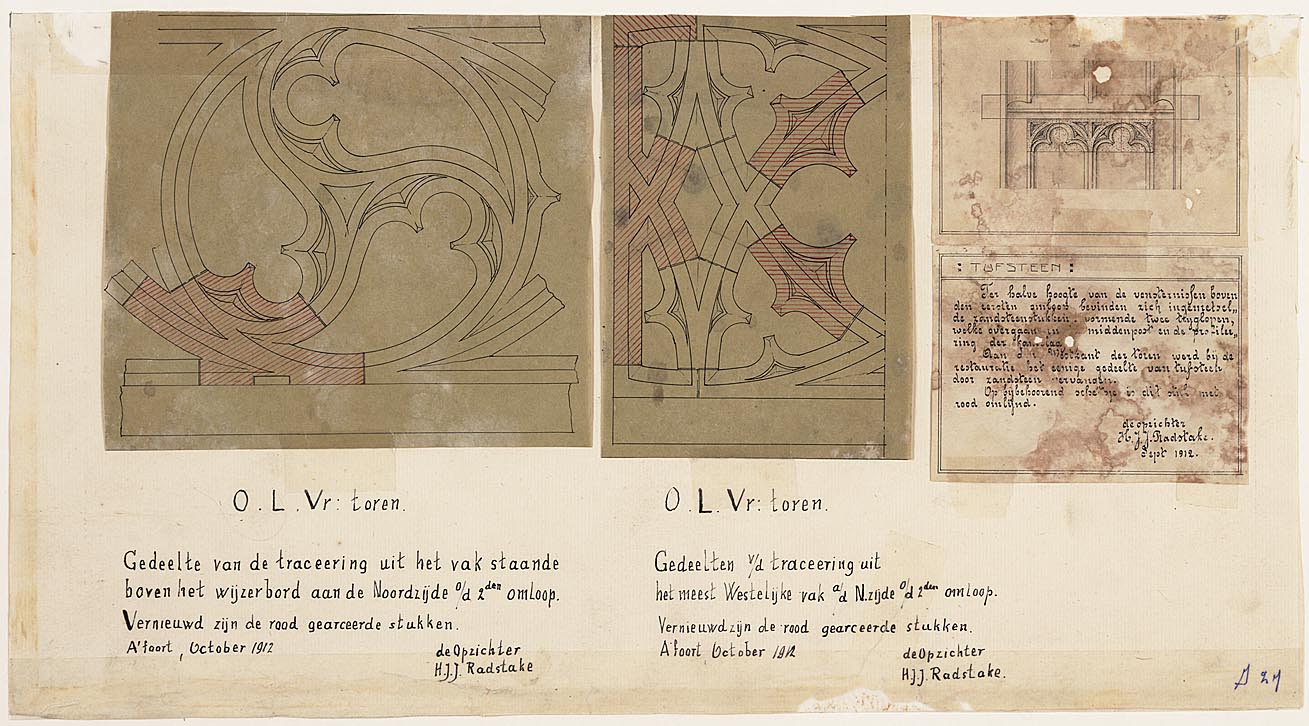 O. L. Vr: toren.
Gedeelte van de traceering uit het vak staande
boven het wijzerbord aan de Noordzijde o/d 2den omloop.
Vernieuwd zijn de rood gearceerde stukken.
A'foort, October 1912
de Opzichter
H.J.J. Radstake
O. L. Vr: toren.
Gedeelten v/d traceering uit
het meest Westelijke vak a/d N.zijde o/d 2den omloop.
Vernieuwd zijn de rood gearceerde stukken.
A'foort October 1912
de Opzichter
H.J.J. Radstake.
: TUFSTEEN :
Ter halve hoogte van de vensternissen boven
den eersten omloop bevinden zich
de zandsteenstukken, vormende twee
welke overgaan in middenpost en de profilee„
ring der
Aan de Westkant der toren werd bij de
restauratie het eenige gedeelte van tufsteen
door zandsteen vervangen.
Op bijbehoorend schetsje is dit stuk met
rood omlijnd.
de opzichter
H.J.J. Radstake.
Sept 1912.